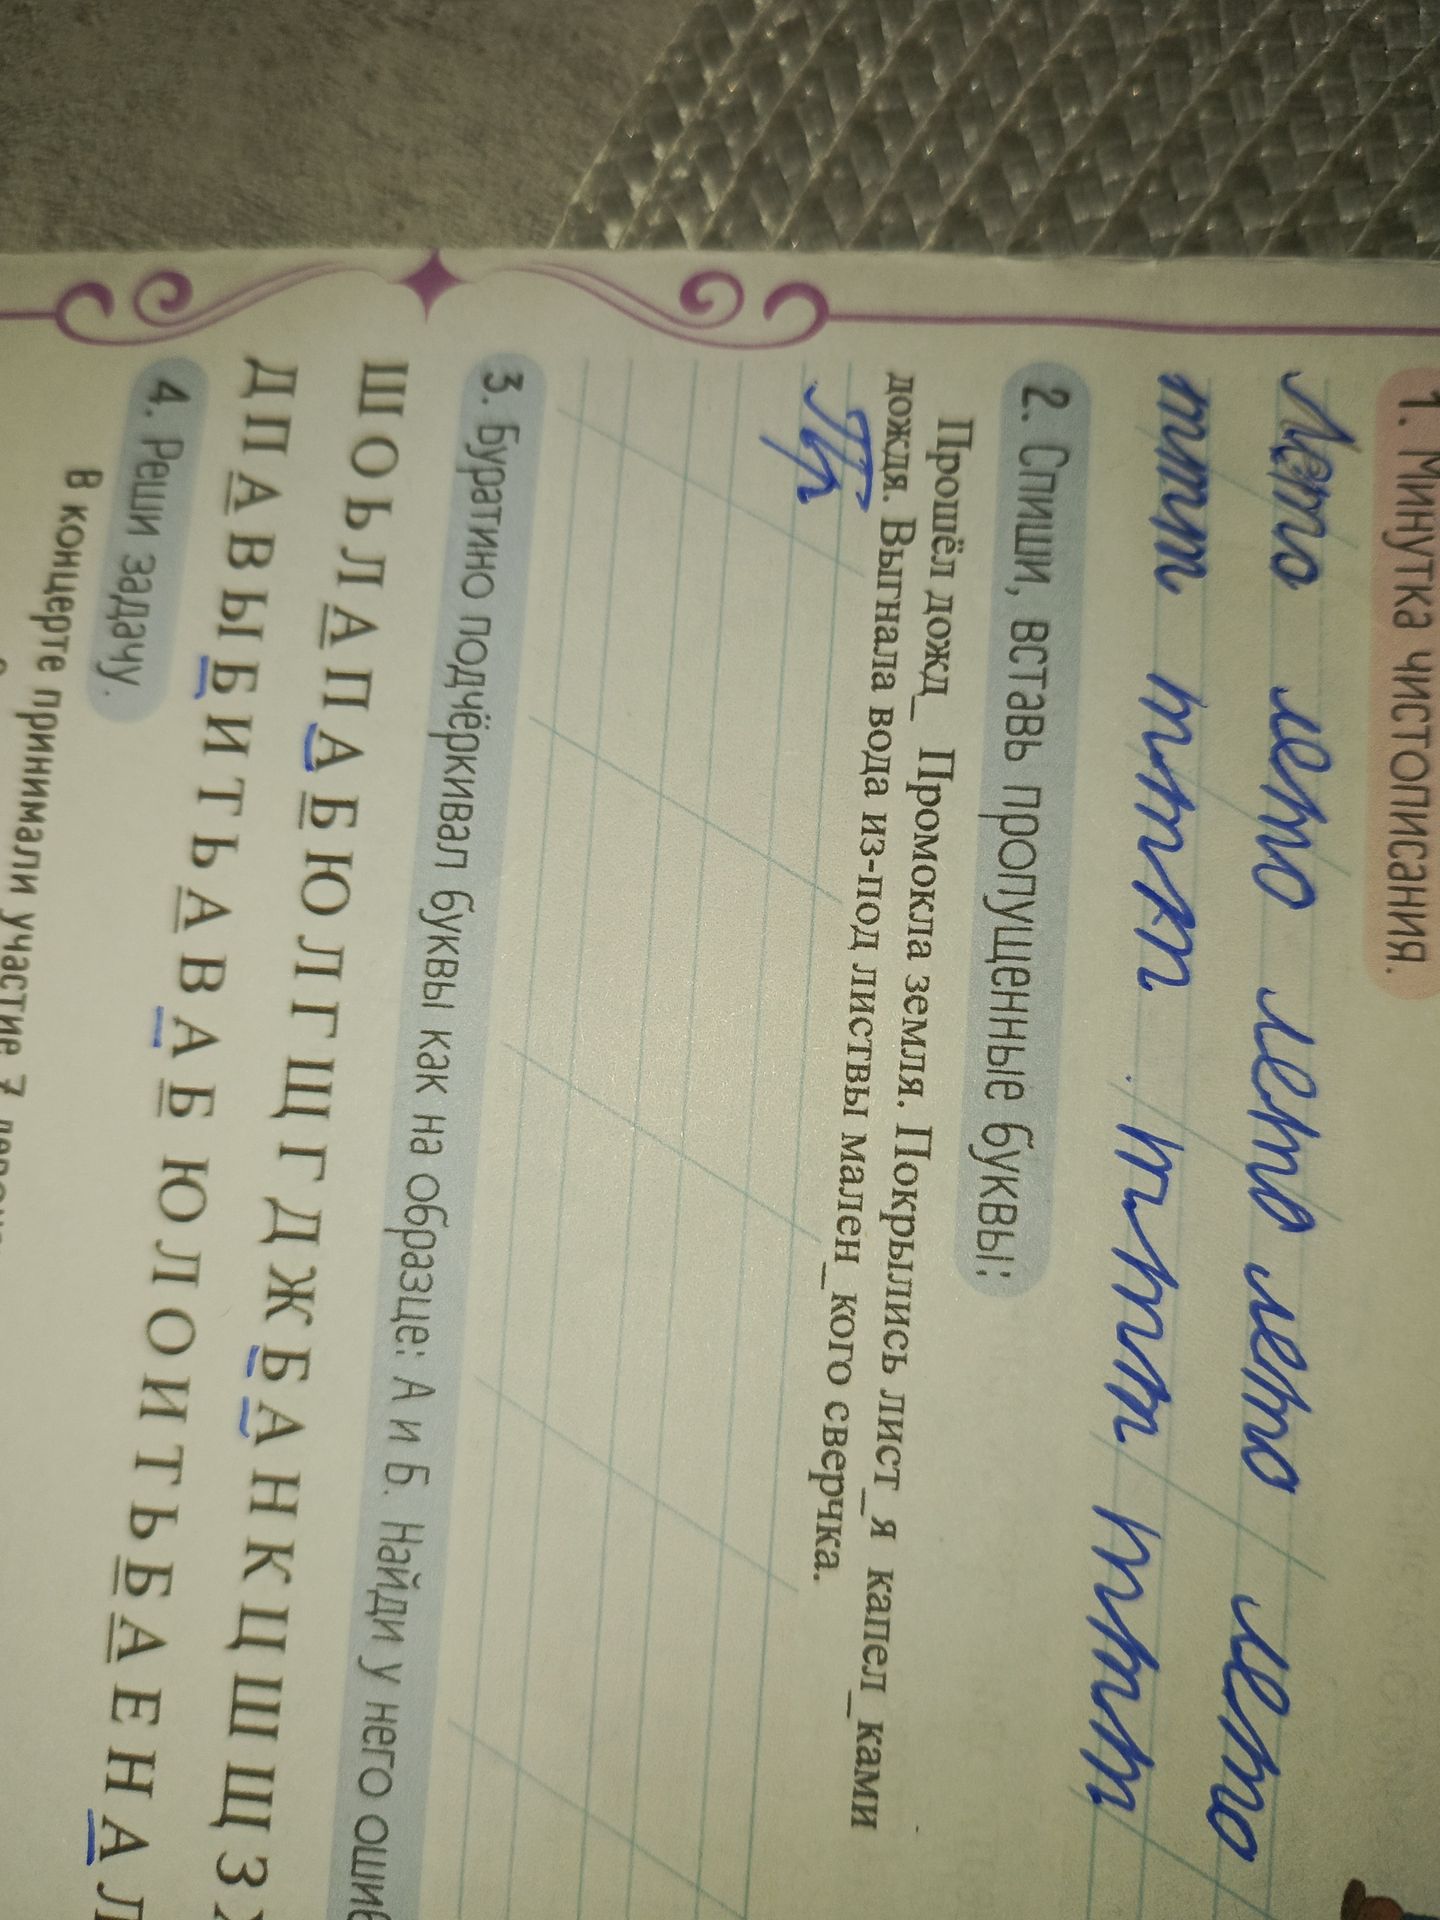 1. Минутка чистописания.
Лето лето лето лето лето
2. Спиши, вставь пропущенные буквы:
Прошёл дожд_ Промокла земля. Покрылись лист_я капел_ками
дождя. Выгнала вода из-под листвы мален_кого сверчка.
Пр
3. Буратино подчёркивал буквы как на образце: А и Б. Найди у него
Ш О Ь Л А П А Б Ю Л Г Щ Г Д Ж Б А Н К Ц Ш Щ З
Д П А В Ы Б И Т Ь А В А Б Ю Л О И Т Ь Б А Е Н А Л
4. Реши задачу.
В концерте принимали участие 7